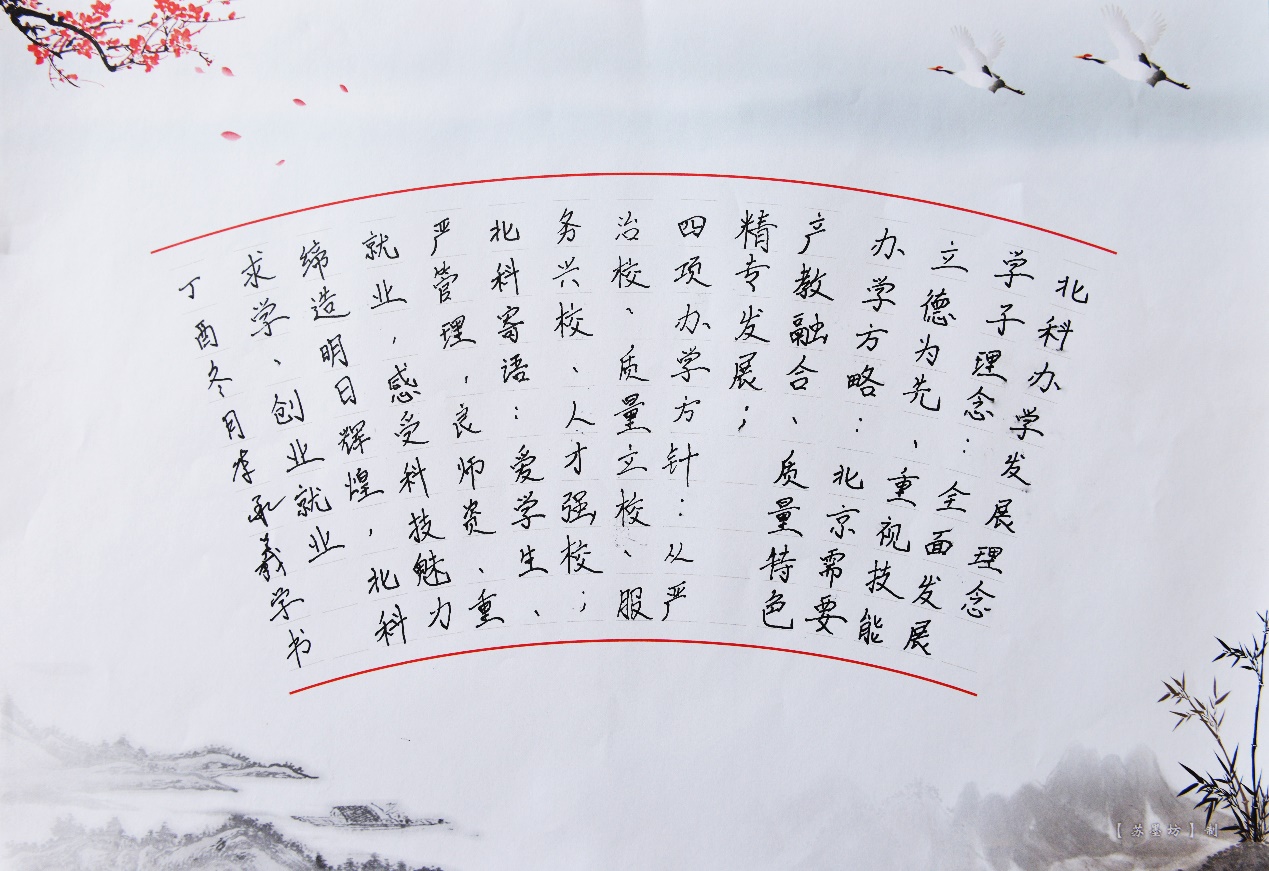 北科办学发展理念
学子理念：全面发展
立德为先、重视技能
办学方略：北京需要
产教融合、质量特色
精专发展；
四项办学方针：从严
治校、质量立校、服
务兴校、人才强校；
北科寄语：爱学生、
严管理，良师资、重
就业，感受科技魅力
缔造明日辉煌，北科
求学、创业就业
丁酉冬月李承羲学书
【苏墨坊】制